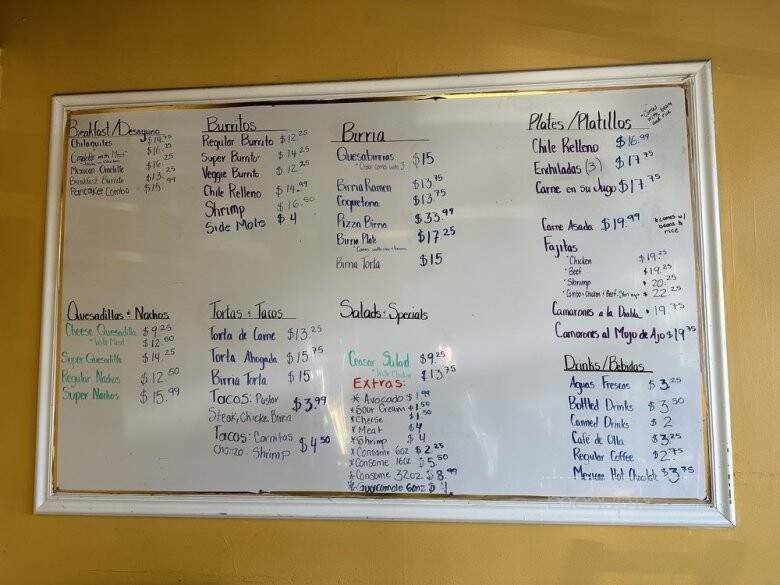 Breakfast/Desayuno
Chilaquiles $14.75
Omelette with Meat $16.
Mexican Omelette $16.25
Breakfast Burrito $13.25
Pancake Combo $15.99
Burritos
Regular Burrito $12.25
Super Burrito $14.25
Veggie Burrito $12.25
Chile Relleno $14.99
Shrimp $16.50
Side Mole $4
Birria
Quesabirrias $15
*Order comes with 3
Birria Ramen $13.75
Coquetona $13.75
Pizza Birria $33.99
Birria Plate $17.25
Birria Torta $15
Plates/Platillos
*Comes with beans and rice
Chile Relleno $16.99
Enchiladas (3) $17.75
Carne en su Jugo $17.75
Carne Asada $19.99
*comes w/ beans & rice
Fajitas
*Chicken $19.25
*Beef $19.25
*Shrimp $20.25
*Combo: Chicken & Beef, Shrimp $22.25
Camarones a la Diabla $19.75
Camarones al Mojo de Ajo $19.75
Quesadillas & Nachos
Cheese Quesadilla $9.25
*With Meat $12.50
Super Quesadilla $14.25
Regular Nachos $12.50
Super Nachos $15.99
Tortas & Tacos
Torta de Carne $13.25
Torta Ahogada $15.75
Birria Torta $15
Tacos: Pastor $3.99
Steak, Chicke Birria
Tacos: Carnitas $4.50
Chorizo Shrimp
Salads & Specials
Ceaser Salad $9.25
*With Chicken $13.75
Extras:
*Avocado $1.99
*Sour Cream $1.50
*Cheese $1.50
*Meat $4
*Shrimp $4
*Consome 6oz $2.25
*Consome 16oz $5.50
*Consome 32oz $8.99
*Guacamole 6oz $
Drinks/Bebidas
Aguas Frescas $3.25
Bottled Drinks $3.50
Canned Drinks $2
Café de Olla $3.25
Regular Coffee $2.75
Mexican Hot Chocolate $3.75